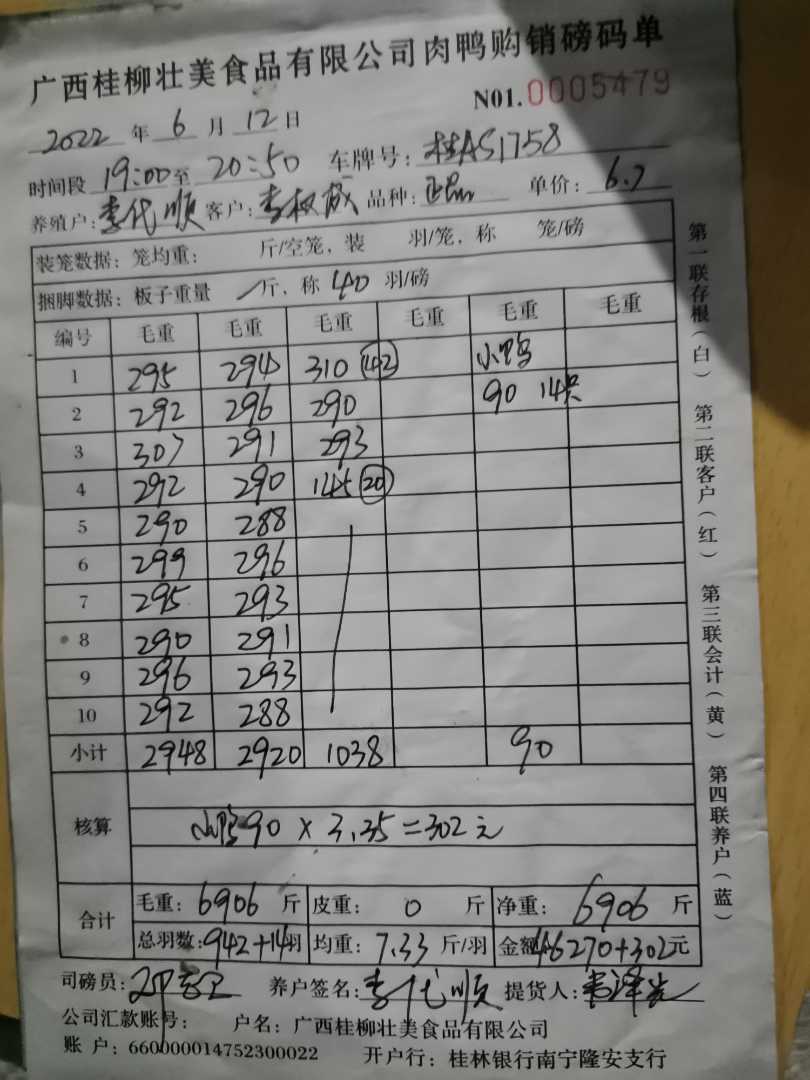 广西桂柳壮美食品有限公司肉鸭购销磅码单
N01.0005479
2022 年 6 月 12 日
时间段 19:00 至 20:50 车牌号: 桂AS1758
养殖户: 李代顺 客户: 李权成 品种: 单价: 6.7
装笼数据: 笼均重: 斤/空笼, 装 羽/笼, 称 笼/磅
捆脚数据: 板子重量 / 斤, 称 40 羽/磅
编号 毛重 毛重 毛重 毛重 毛重 毛重
1 295 294 310 (42) 小鸭
2 292 296 290 90 14只
3 307 291 293
4 292 290 145 (20)
5 290 288
6 299 296
7 295 293
8 290 291
9 296 293
10 292 288
小计 2948 2920 1038 90
核算 小鸭90 × 3.35 = 302 元
合计 毛重: 6906 斤 皮重: 0 斤 净重: 6906 斤
总羽数: 942+14 羽 均重: 7.33 斤/羽 金额 46270+302 元
司磅员: 养户签名: 李代顺 提货人:
公司汇款账号: 户名: 广西桂柳壮美食品有限公司
账 户: 660000014752300022 开户行: 桂林银行南宁隆安支行
第一联存根(白) 第二联客户(红) 第三联会计(黄) 第四联养户(蓝)